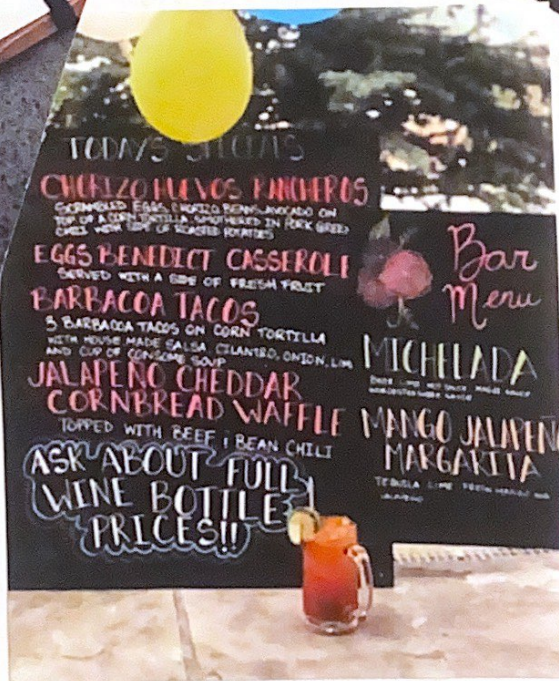 TODAYS SPECIALS
CHORIZO HUEVOS RANCHEROS
SCRAMBLED EGGS, CHORIZO BEANS, AVOCADO ON
TOP OF A CORN TORTILLA, SMOTHERED IN PORK GREEN
CHILI WITH SIDE OF ROASTED POTATOES
EGGS BENEDICT CASSEROLE
SERVED WITH A SIDE OF FRESH FRUIT
BARBACOA TACOS
3 BARBACOA TACOS ON CORN TORTILLA
WITH HOUSE MADE SALSA, CILANTRO, ONION, LIM
AND CUP OF CONSOME SOUP
JALAPEÑO CHEDDAR
CORNBREAD WAFFLE
TOPPED WITH BEEF & BEAN CHILI
ASK ABOUT FULL
WINE BOTTLE
PRICES!!
Bar
Menu
MICHELADA
BEER LIME HOT SAUCE
WORCESTERSHIRE SAUCE
MANGO JALAPEÑ
MARGARITA
TEQUILA LIME FRESH MANGO AND
JALAPEÑO